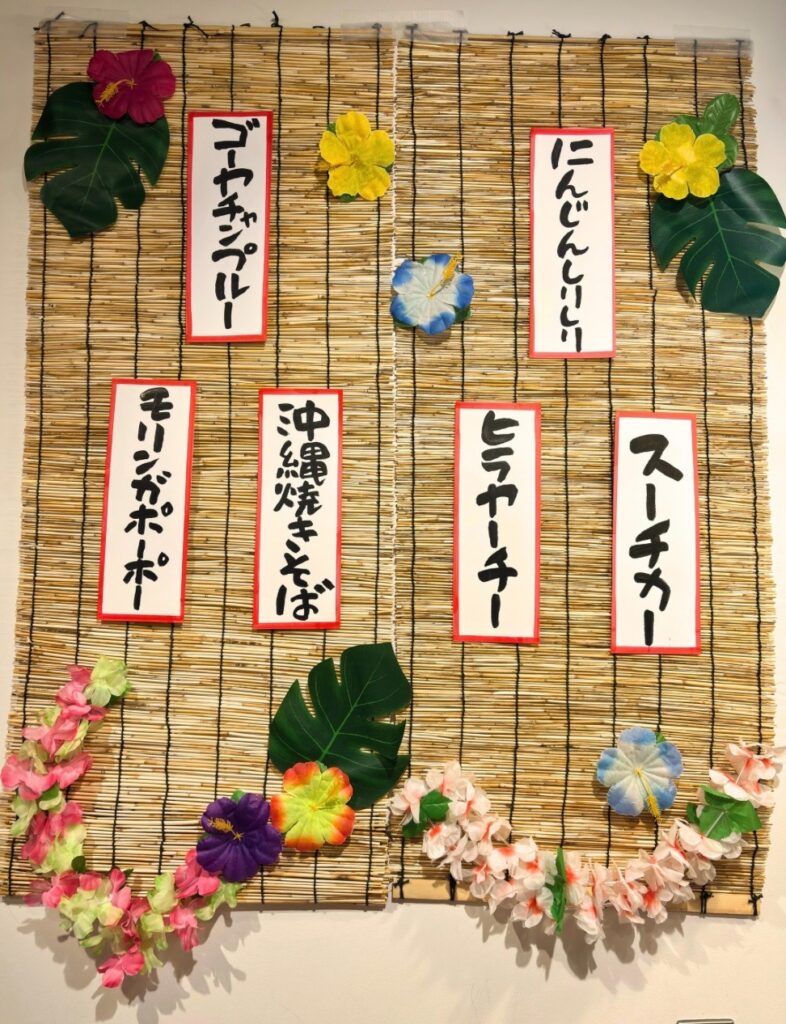 ゴーヤチャンプルー
にんじんしりしり
モリンガポーポー
沖縄焼きそば
ヒラヤーチー
スーチカー